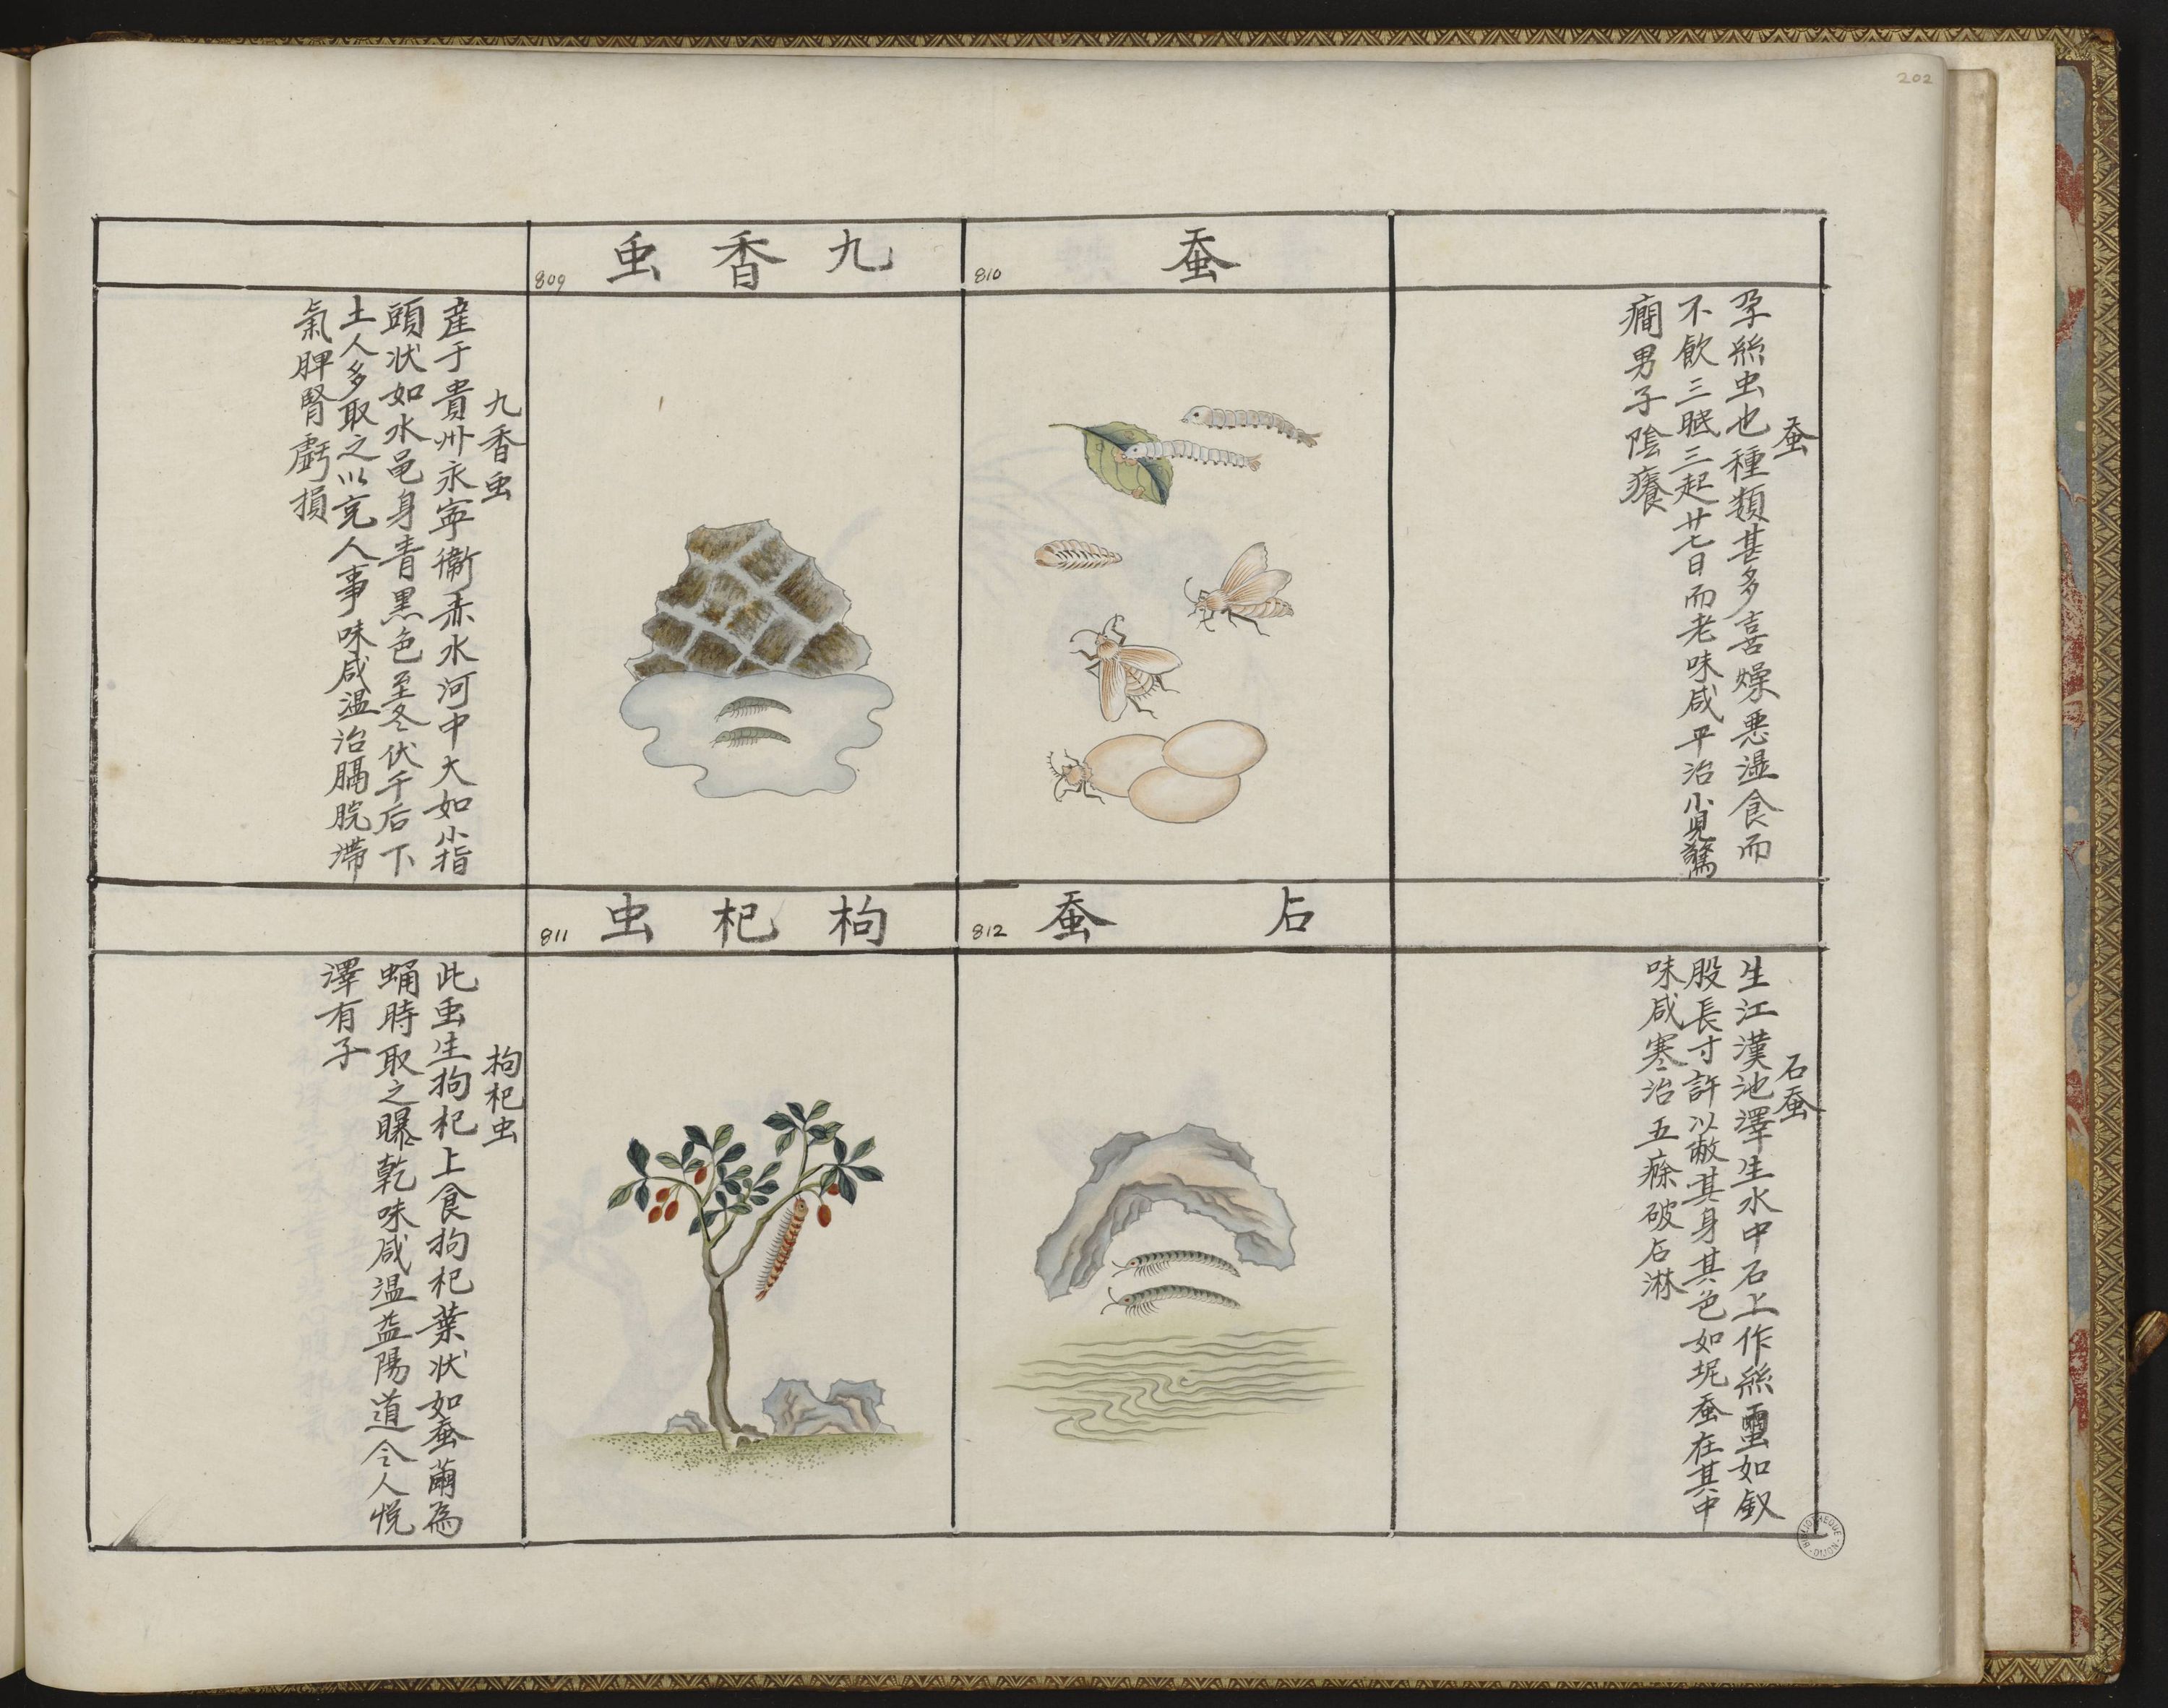 202
蚕
810
蚕
孕絲虫也種類甚多喜燥惡濕食而
不飲三眠三起廿七日而老味咸平治小兒驚
癇男子陰癢
九香虫
809
九香虫
産于貴州永寧衞赤水河中大如小指
頭状如水黾身青黒色至冬伏于后下
土人多取之以克人事味咸温治膈脘滞
氣脾腎虧損
石蚕
812
石蚕
生江漢池澤生水中石上作絲璽如釵
股長寸許以蔽其身其色如坭蚕在其中
味咸寒治五癃破石淋
枸杞虫
811
枸杞虫
此虫生枸杞上食枸杞葉状如蚕繭為
蛹時取之曝乾味咸温益陽道令人悦
澤有子
BIBLIOTHEQUE DIJON